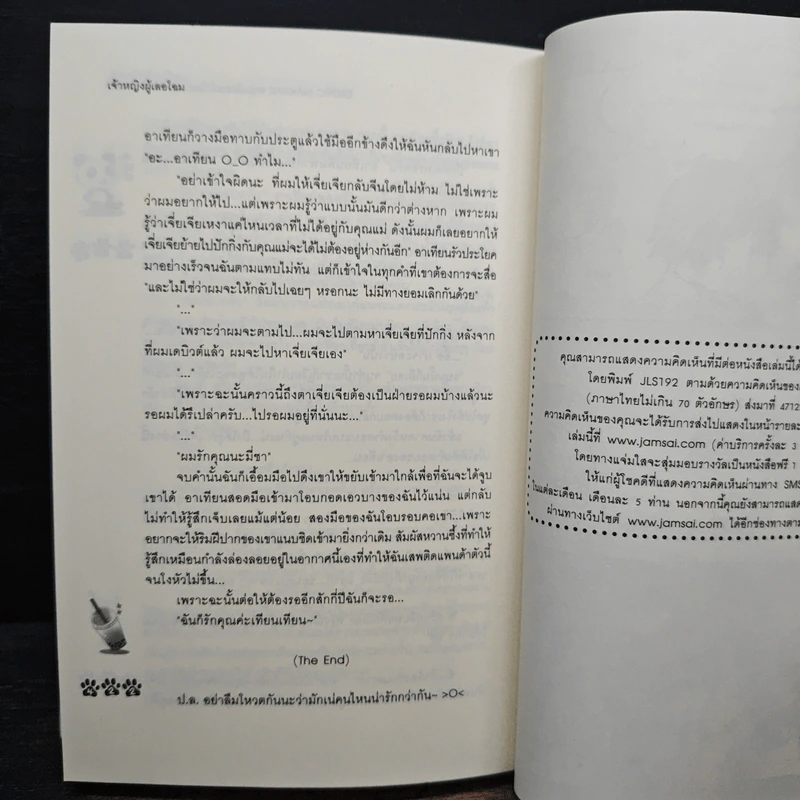 เจ้าหญิงผู้เลอโฉม
อาเทียนก็วางมือทาบกับประตูแล้วใช้มืออีกข้างดึงให้ฉันหันกลับไปหาเขา
"อะ...อาเทียน O_O ทำไม..."
"อย่าเข้าใจผิดนะ ที่ผมให้เจี่ยเจียกลับจีนโดยไม่ห้าม ไม่ใช่เพราะ
ว่าผมอยากให้ไป...แต่เพราะผมรู้ว่าแบบนั้นมันดีกว่าต่างหาก เพราะผม
รู้ว่าเจี่ยเจียเหงาแค่ไหนเวลาที่ไม่ได้อยู่กับคุณแม่ ดังนั้นผมก็เลยอยากให้
เจี่ยเจียย้ายไปปักกิ่งกับคุณแม่จะได้ไม่ต้องอยู่ห่างกันอีก" อาเทียนรัวประโยค
มาอย่างเร็วจนฉันตามแทบไม่ทัน แต่ก็เข้าใจในทุกคำที่เขาต้องการจะสื่อ
"และไม่ใช่ว่าผมจะให้กลับไปเฉยๆ หรอกนะ ไม่มีทางยอมเลิกกันด้วย"
"..."
"เพราะว่าผมจะตามไป...ผมจะไปตามหาเจี่ยเจียที่ปักกิ่ง หลังจาก
ที่ผมเดบิวต์แล้ว ผมจะไปหาเจี่ยเจียเอง"
"..."
"เพราะฉะนั้นคราวนี้ถึงตาเจี่ยเจียต้องเป็นฝ่ายรอผมบ้างแล้วนะ
รอผมได้รึเปล่าครับ...ไปรอผมอยู่ที่นั่นนะ..."
"..."
"ผมรักคุณนะมี่ชา"
จบคำนั้นฉันก็เอื้อมมือไปดึงเขาให้ขยับเข้ามาใกล้เพื่อที่ฉันจะได้จูบ
เขาได้ อาเทียนสอดมือเข้ามาโอบกอดเอวบางของฉันไว้แน่น แต่กลับ
ไม่ทำให้รู้สึกเจ็บเลยแม้แต่น้อย สองมือของฉันโอบรอบคอเขา...เพราะ
อยากจะให้ริมฝีปากของเขาแนบชิดเข้ามายิ่งกว่าเดิม สัมผัสหวานซึ้งที่ทำให้
รู้สึกเหมือนกำลังล่องลอยอยู่ในอากาศนี้เองที่ทำให้ฉันเสพติดแพนด้าตัวนี้
จนโงหัวไม่ขึ้น...
เพราะฉะนั้นต่อให้ต้องรออีกสักกี่ปีฉันก็จะรอ...
"ฉันก็รักคุณค่ะเทียนเทียน~"
(The End)
ป.ล. อย่าลืมโหวตกันนะว่ามักเน่คนไหนน่ารักกว่ากัน~ >O<
คุณสามารถแสดงความคิดเห็นที่มีต่อหนังสือเล่มนี้ได้
โดยพิมพ์ JLS192 ตามด้วยความคิดเห็นของ
(ภาษาไทยไม่เกิน 70 ตัวอักษร) ส่งมาที่ 4712
ความคิดเห็นของคุณจะได้รับการส่งไปแสดงในหน้ารายละ
เล่มนี้ที่ www.jamsai.com (ค่าบริการครั้งละ 3
โดยทางแจ่มใสจะสุ่มมอบรางวัลเป็นหนังสือฟรี 1
ให้แก่ผู้โชคดีที่แสดงความคิดเห็นผ่านทาง SMS
ในแต่ละเดือน เดือนละ 5 ท่าน นอกจากนี้คุณยังสามารถแสด
ผ่านทางเว็บไซต์ www.jamsai.com ได้อีกช่องทางตาม